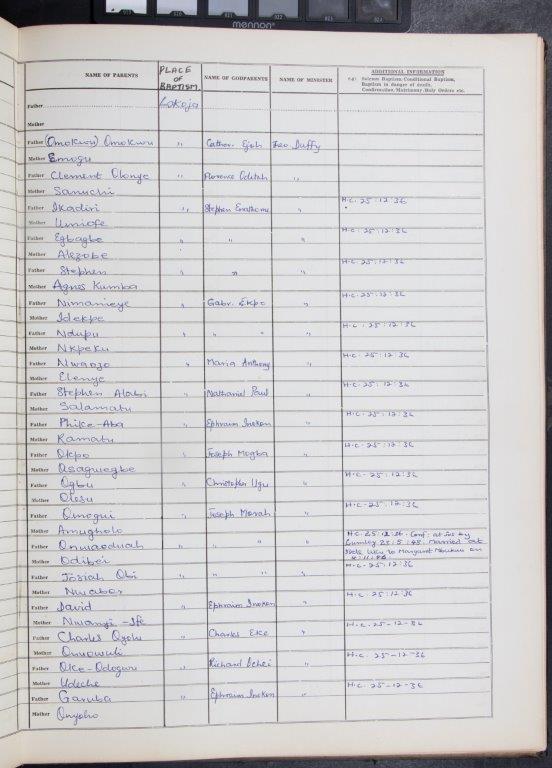 mennon
NAME OF PARENTS PLACE OF BAPTISM NAME OF GODPARENTS NAME OF MINISTER ADDITIONAL INFORMATION
e.g: Solemn Baptism, Conditional Baptism,
Baptism in danger of death,
Confirmation, Matrimony, Holy Orders etc.
Father Lokoja
Mother
Father (Omokwu) Omokwu " Cather. Ejeh Leo Duffy
Mother Emogu
Father Clement Olonye " Florence Oditah "
Mother Sanuchi
Father Ikadiri " Stephen " H.C. 25:12:36
Mother Umiofe
Father Egbagbe " " " H.C. 25:12:36
Mother Alezobe
Father Stephen " " " H.C. 25:12:36
Mother Agnes Kumba
Father Nimanieye " Gabr. Ekpo " H.C. 25:12:36
Mother Idekpe
Father Ndupu " " " " H.C. 25:12:36
Mother Nkpeku
Father Nwaojo " Maria Anthony " H.C. 25:12:36
Mother Elenye
Father Stephen Alabi " Nathaniel Paul " H.C. 25:12:36
Mother Salamatu
Father Phike-Aba " Ephraim Inokon " H.C. 25:12:36
Mother Ramatu
Father Okpo " Joseph Mogba " H.C. 25:12:36
Mother Osaguegbe
Father Ogbu " Christopher Ugu " H.C. 25:12:36
Mother Olosu
Father Omogui " Joseph Morah " H.C. 25:12:36
Mother Amugholo
Father Onwaoduah " " " " H.C. 25:12:36. Conf: at Jos by
Lumley 23:5:48. Married at
to Margaret on
Mother Odibei
Father Josiah Obi " " " " H.C. 25:12:36
Mother Nwabor
Father David " Ephraim Inokon " H.C. 25:12:36
Mother Nwanyi-Ife
Father Charles Ozolu " Charles Eke " H.C. 25-12-36
Mother Onwowuli
Father Oke-Odogwu " Richard Ichei " H.C. 25-12-36
Mother Udeche
Father Garuba " Ephraim Inokon " H.C. 25-12-36
Mother Onyoho